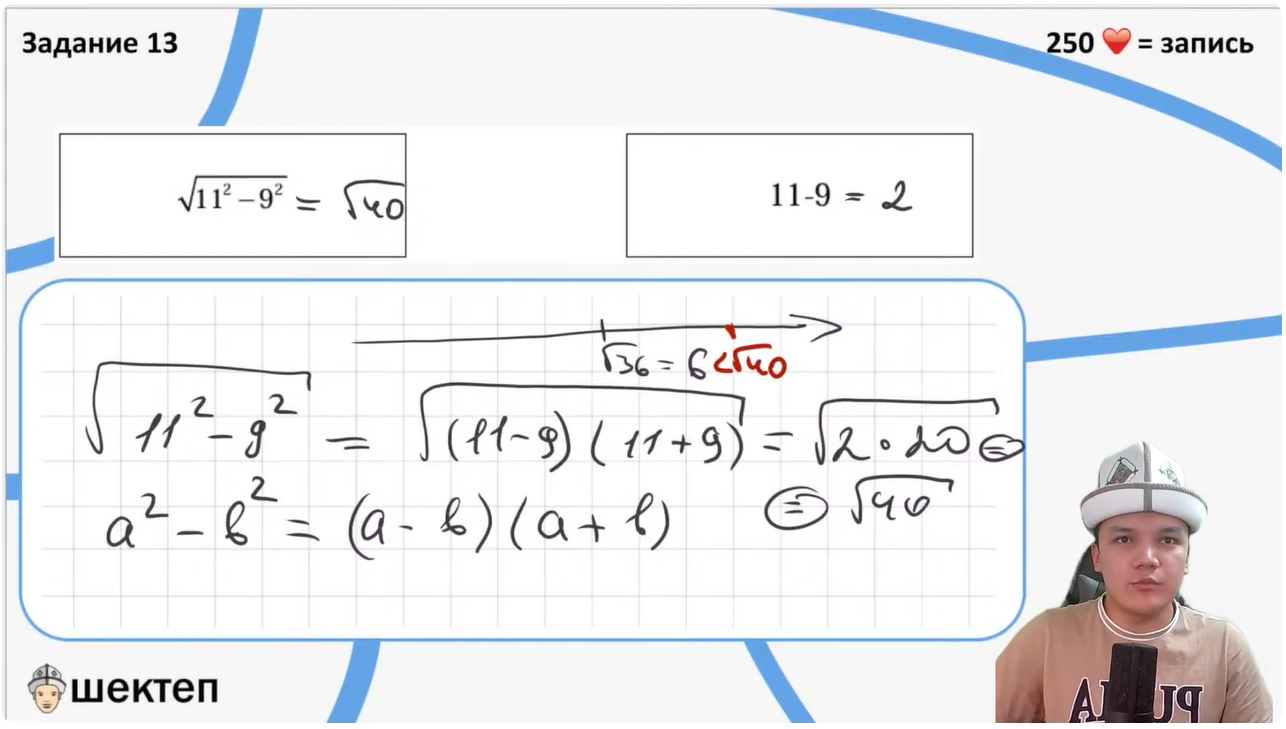 Задание 13
250 ❤️ = запись
√11² – 9² = √40
11-9 = 2
√36 = 6 < √40
√11² - 9² = √(11-9)(11+9) = √2·20 =
a² - b² = (a - b)(a + b)
= √40
шектеп